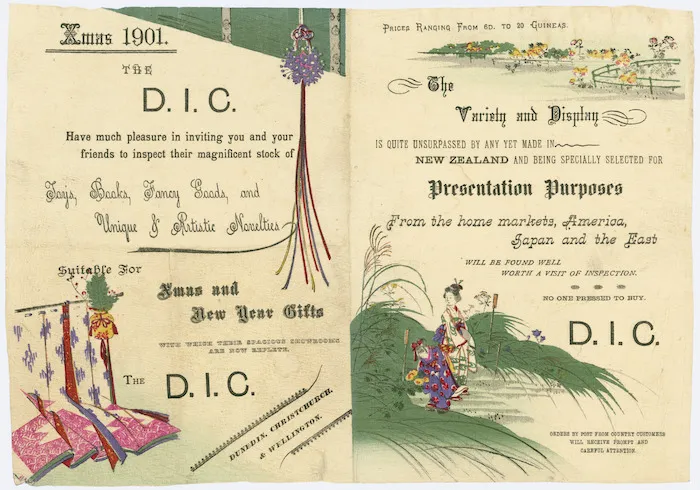 Xmas 1901.
THE
D. I. C.
Have much pleasure in inviting you and your
friends to inspect their magnificent stock of
Toys, Books, Fancy Goods, and
Unique & Artistic Novelties
Suitable For
Xmas and
New Year Gifts
WITH WHICH THEIR SPACIOUS SHOWROOMS
ARE NOW REPLETE,
THE D. I. C.
DUNEDIN, CHRISTCHURCH,
& WELLINGTON.
PRICES RANGING FROM 6D. TO 20 GUINEAS.
The
Variety and Display
IS QUITE UNSURPASSED BY ANY YET MADE IN
NEW ZEALAND AND BEING SPECIALLY SELECTED FOR
Presentation Purposes
From the home markets, America,
Japan and the East
WILL BE FOUND WELL
WORTH A VISIT OF INSPECTION.
NO ONE PRESSED TO BUY.
D. I. C.
ORDERS BY POST FROM COUNTRY CUSTOMERS
WILL RECEIVE PROMPT AND
CAREFUL ATTENTION.